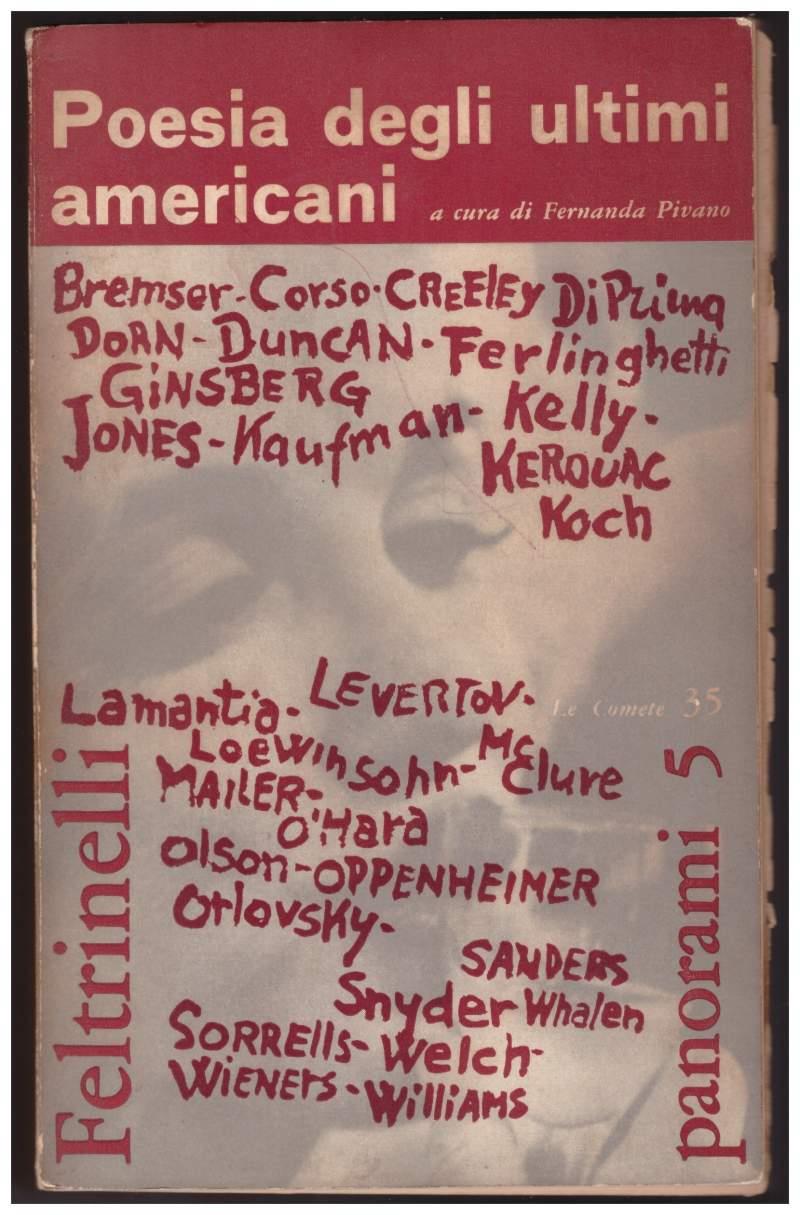 Poesia degli ultimi
americani a cura di Fernanda Pivano
Bremser-Corso·CREEleY DiPrima
DoRN-DuncAN·Ferlinghetti
GiNSBERG
JONES-Kaufman-Kelly-
KEROUAC
Koch
Lamantia-LEVERTOV-
Le Comete 35
Loewinsohn-McClure
MAiLER-
O'Hara
Olson-OPPENHEIMER
Orlovsky-
SANDERS
Snyder Whalen
SORRElls-Welch-
WIENERS-WilliAMS
Feltrinelli
panorami 5